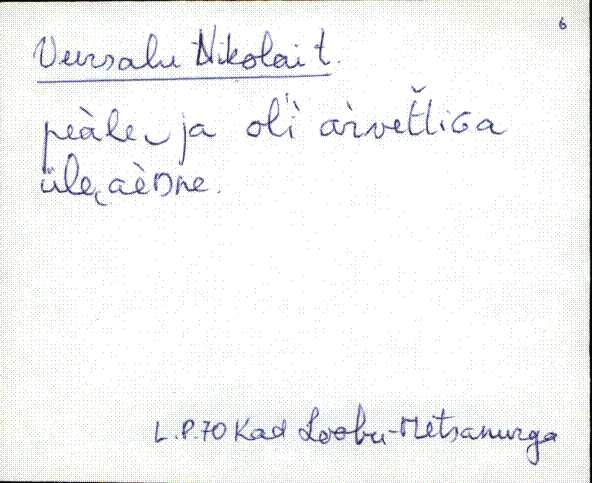 6
Vursalu Nikolai t.
peàle ja oli àrveťliGa
üle aèDne.
L.P.70 Kad Loobu-Metsanurga